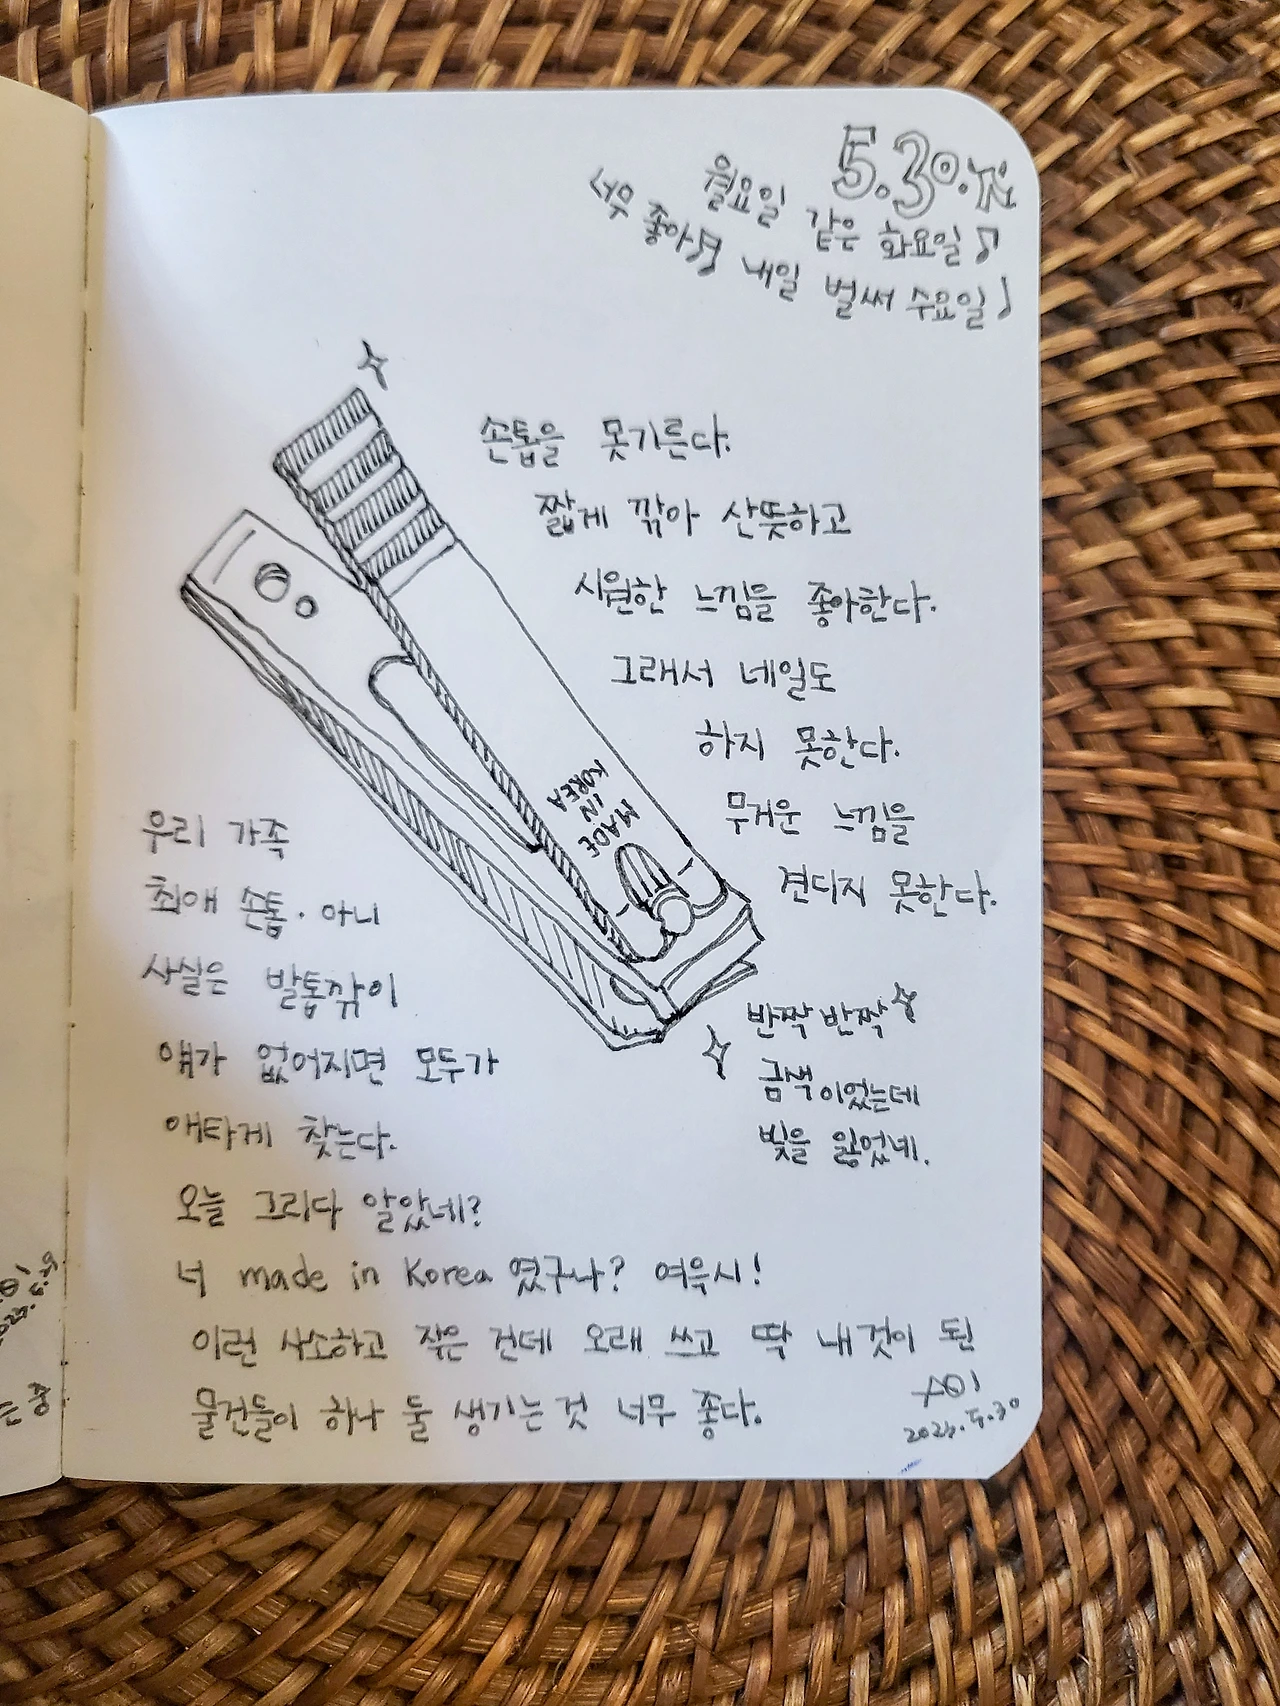 5.30.火
월요일 같은 화요일♪
너무 좋아♬ 내일 벌써 수요일♪
손톱을 못기른다.
짧게 깎아 산뜻하고
시원한 느낌을 좋아한다.
그래서 네일도
하지 못한다.
무거운 느낌을
견디지 못한다.
MADE
IN
KOREA
반짝반짝
금색이었는데
빛을 잃었네.
우리 가족
최애 손톱. 아니
사실은 발톱깎이
얘가 없어지면 모두가
애타게 찾는다.
오늘 그리다 알았네?
너 made in Korea 였구나? 여윽시!
이런 사소하고 작은 건데 오래 쓰고 딱 내것이 된
물건들이 하나 둘 생기는것 너무 좋다.